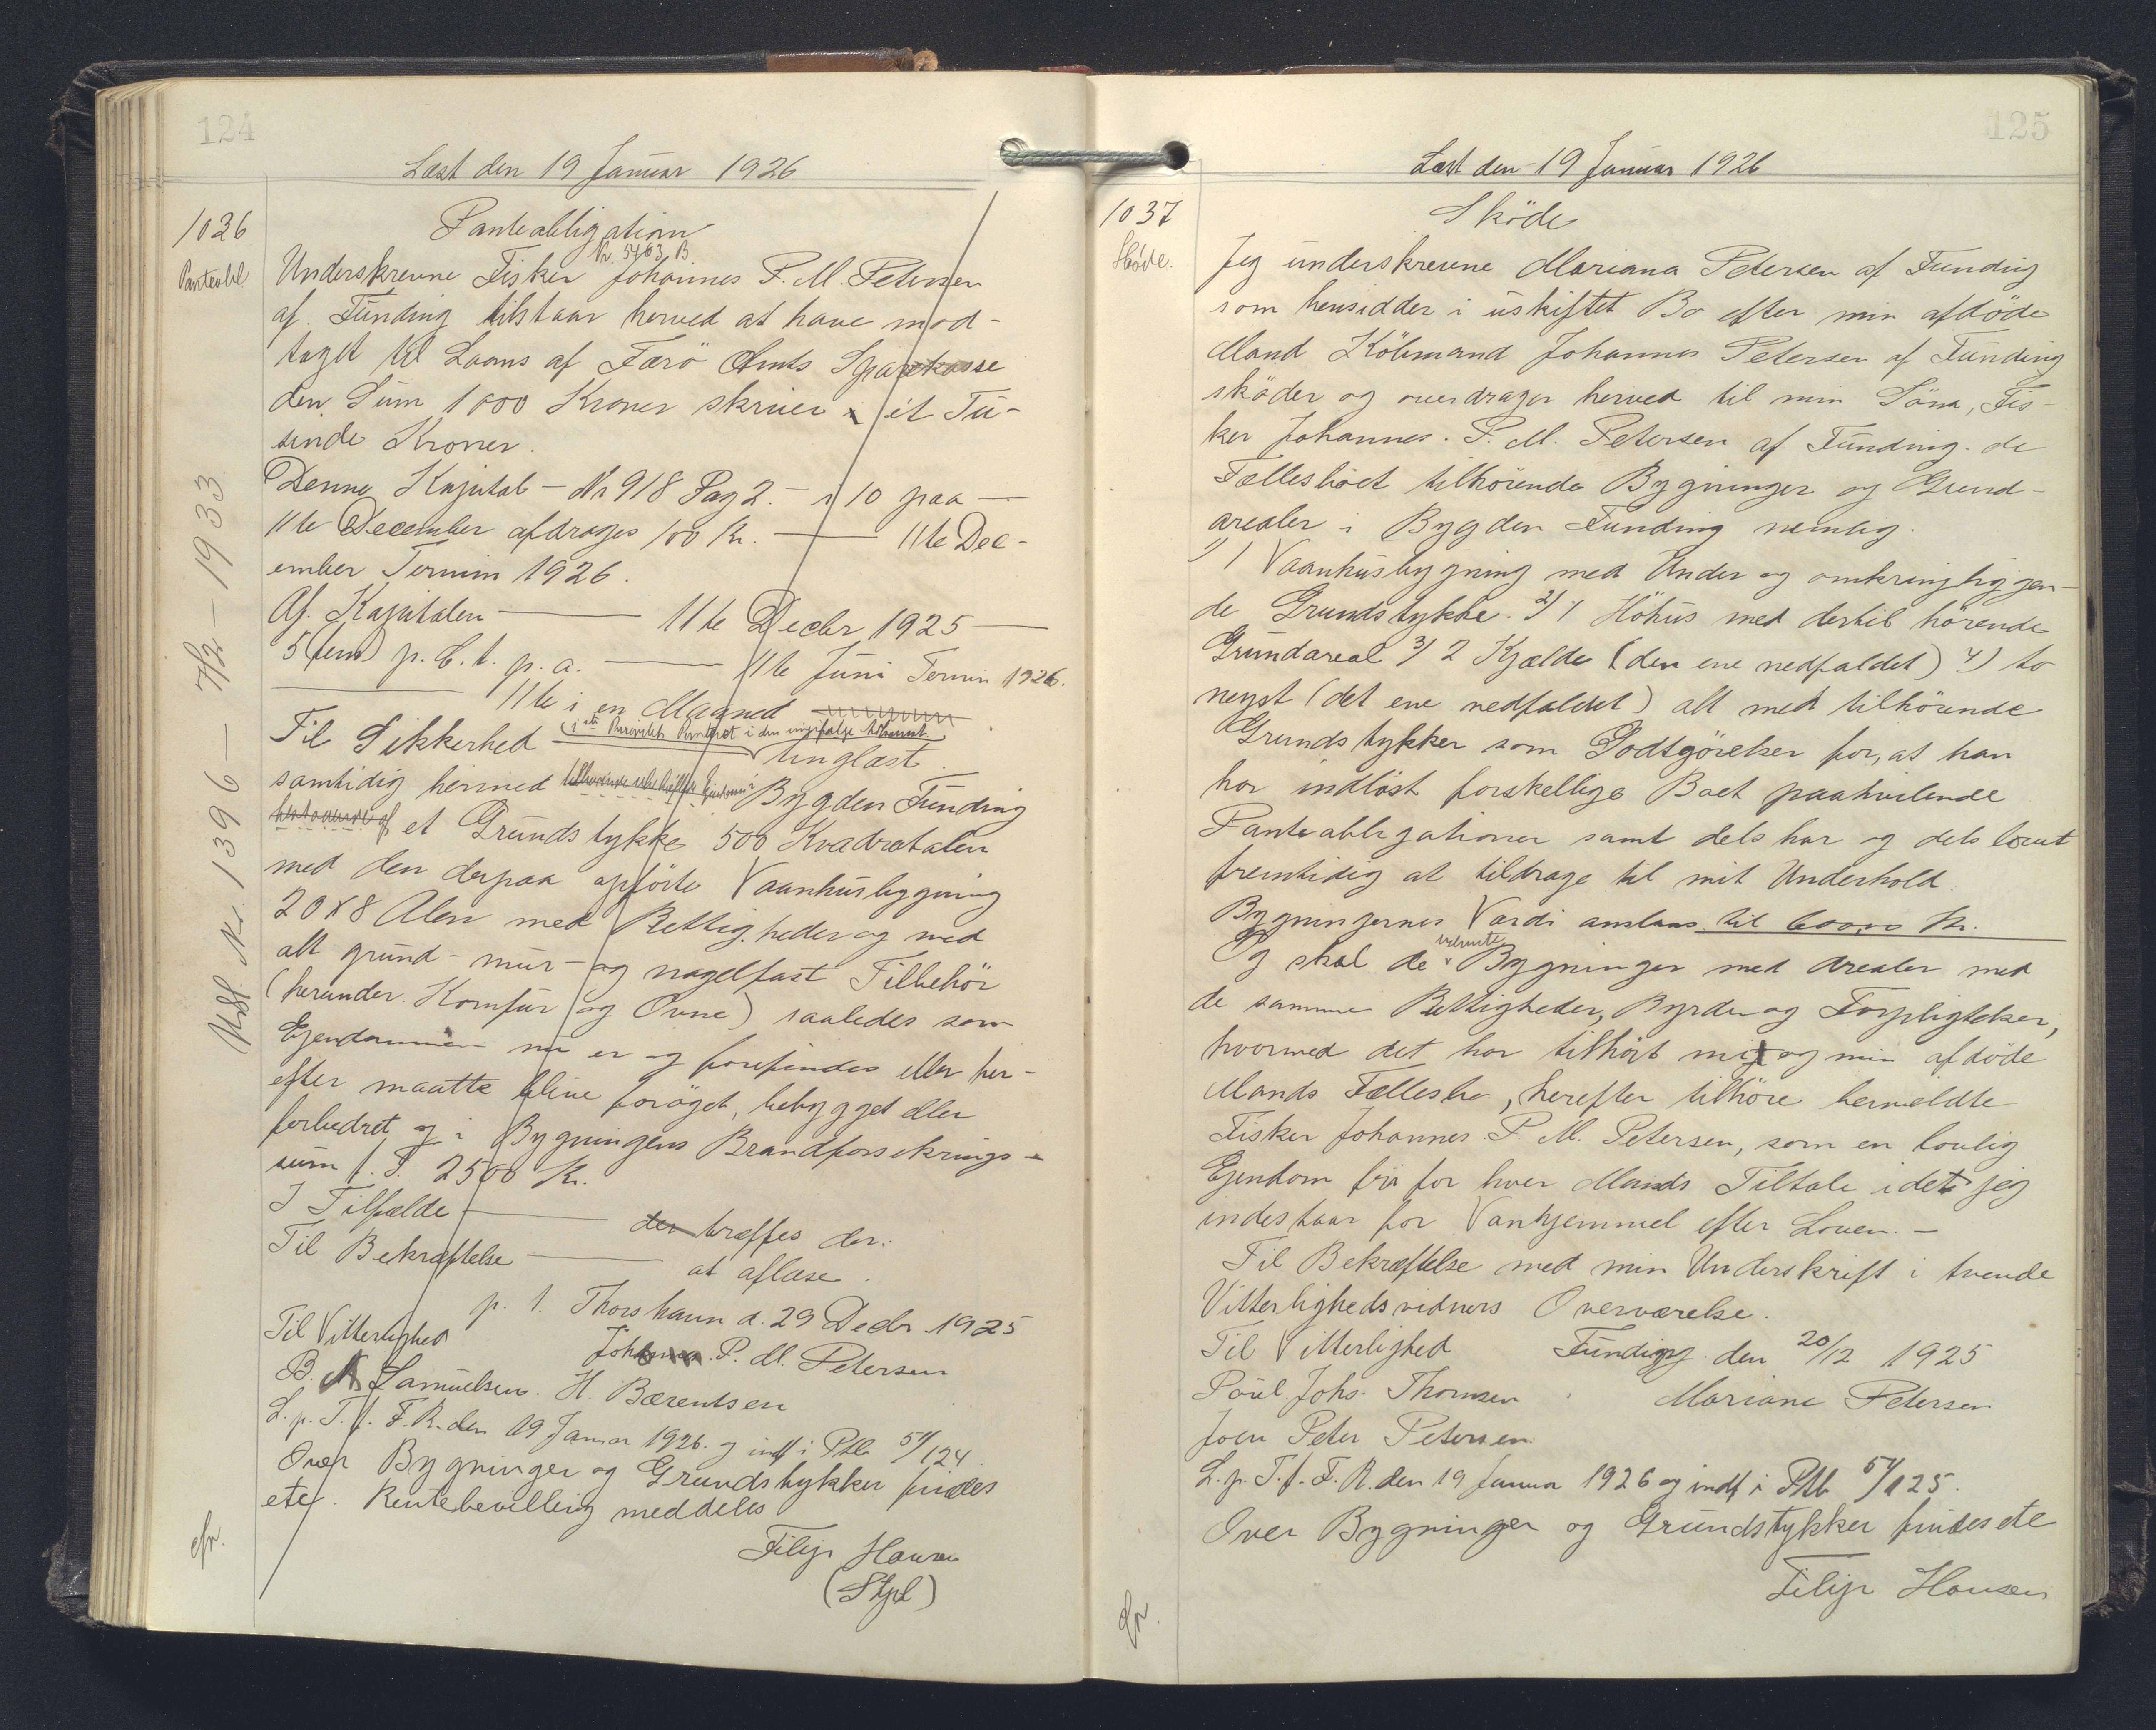 124
Læst den 19 Januar 1926
1036
Pantobl
Panteobligation
Nr. 5403 B.
Underskrevne Fisker Johannes P. M. Petersen
af. Funding tilstaar herved at have mod-
taget til Laans af Færö Amts Sparekasse
den Sum 1000 Kroner skriver et Tu-
sinde Kroner.
Denne Kapital - No 918 Pag 2. - 10 paa —
11te December afdrages 100 Kr. — 11te Dec-
ember Termin 1926.
Af. Kapitalen — 11te Decbr 1925 —
5 (fem) p. C. t. p. a. — 11te Juni Termin 1926.
— 11te i en Maaned
Til Sikkerhed — Panteret i den
tinglæst
samtidig hermed Bygden Funding
bestaaende af et Grundstykke 500 Kvadratalen
med den derpaa opförte Vaanhusbygning
20 x 8 Alen med Rettigheder og med
alt grund- mur- og nagelfast Tilbehör
(herunder Komfur og Ovne) saaledes som
Ejendommen nu er og forefindes eller her-
efter maatte blive foröget, bebygget eller
forbedret og i Bygningens Brandforsekrings-
sum f. T. 2500 Kr.
I Tilfælde — der træffes der.
Til Bekræftelse — at aflæse.
p. t. Thorshavn d. 29 Decbr. 1925
Til Vitterlighed
Johannes P. M. Petersen
B. M Samuelsen. H. Bærentsen
L. p. T. f. F. R. den 19 Januar 1926. og indf i Ptb 54/124.
Over Bygninger og Grundstykker findes
ete. Rentebevilling meddeles
Filip Hansen
(Stpl)
Udsl. Nr. 1396 — 7/2 - 1933
125
Læst den 19 Januar 1926
1037
Sköde.
Sköde
Jeg underskrevne Mariana Petersen af Funding
som hensidder i uskiftet Bo efter min afdöde
Mand Köbmand Johannes Petersen af Funding
sköder og overdrager herved til min Sön, Fis-
ker Johannes. P. M. Petersen af Funding. de
Fællesboet tilhörende Bygninger og Grund-
arealer i Bygden Funding nemlig.
1) 1 Vaanhusbygning med Under og omkringliggen-
de Grundstykke. 2) 1 Höhus med dertil hörende
Grundareal 3) 2 Kjælde (den ene nedfaldet) 4) to
neyst (det ene nedfaldet) alt med tilhörende
Grundstykker som Godtgörelser for, at han
har indlöst forskellige Boet paahvilende
Panteobligationer samt dels har og dels lovet
fremtidig at tildrage til mit Underhold.
Bygningernes Værdi anslaas til 6000,00 Kr.
Og skal de nævnte Bygninger med Arealer med
de samme Rettigheder, Byrder og Forpligtelser,
hvormed det har tilhört mig og min afdöde
Mands Fællesbo, herefter tilhöre bemeldte
Fisker Johannes P. M. Petersen, som en lovlig
Ejendom fri for hver Mands Tiltale idet jeg
indestaar for Vanhjemmel efter Loven. —
Til Bekræftelse med min Underskrift i tvende
Vitterlighedsvidners Overværelse.
Til Vitterlighed Funding den 20/12 1925
Poul Johs. Thomsen Mariane Petersen
Joen Peter Petersen.
L. p. T. f. F. R. den 19 Januar 1926 og indf i Ptb 54/125.
Over Bygninger og Grundstykker findes ete
Filip Hansen